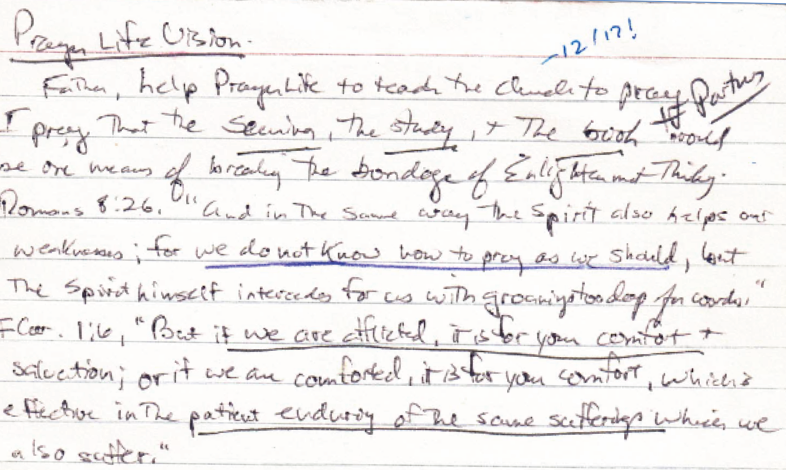 Prayer Life Vision.
-12/17!
Father, help PrayerLife to teach the church to pray
# Partners
I pray that the Seminar, the study, + the book would
be one means of breaking the bondage of Enlightenment Thinking.
Romans 8:26. "And in the same way the Spirit also helps our
weaknesses; for we do not know how to pray as we should, but
the Spirit himself intercedes for us with groanings too deep for words."
II Cor. 1:6, "But if we are afflicted, it is for your comfort +
salvation; or if we are comforted, it is for your comfort, which is
effective in the patient enduring of the same sufferings which we
also suffer."